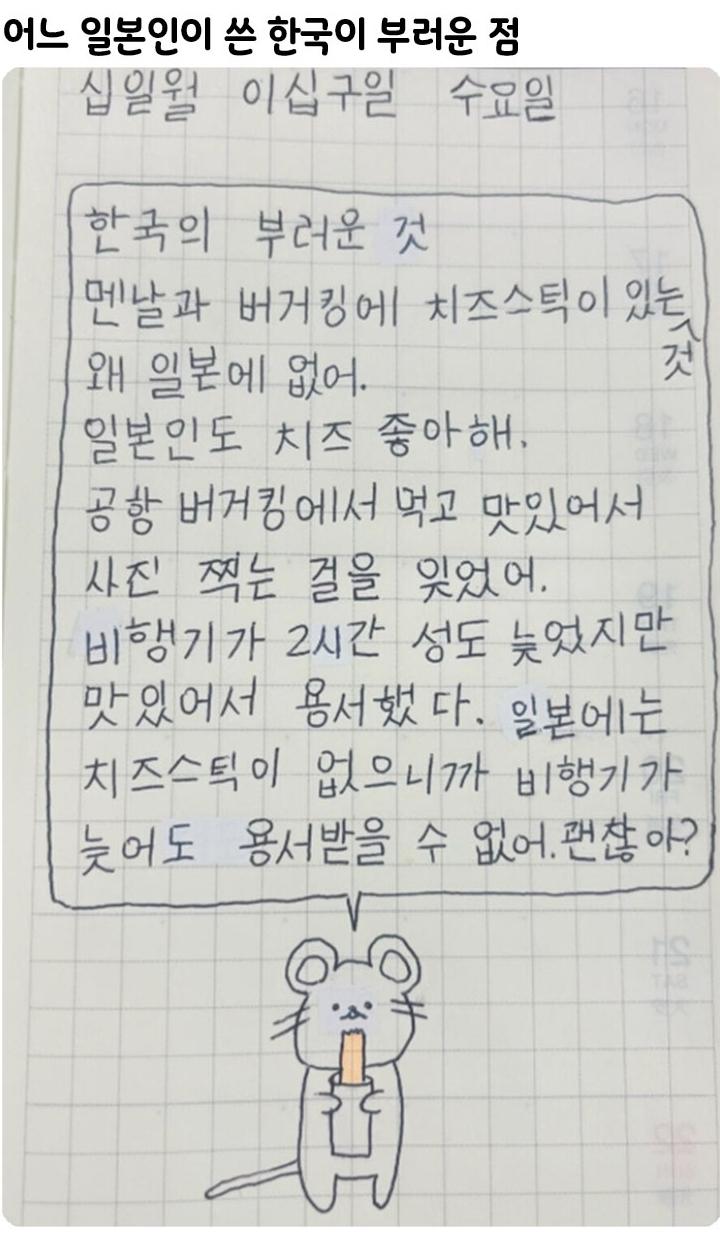 어느 일본인이 쓴 한국이 부러운 점
십일월 이십구일 수요일
한국의 부러운 것
멘날과 버거킹에 치즈스틱이 있는
것
왜 일본에 없어.
일본인도 치즈 좋아해.
공항 버거킹에서 먹고 맛있어서
사진 찍는 걸을 잊었어.
비행기가 2시간 성도 늦었지만
맛있어서 용서했다. 일본에는
치즈스틱이 없으니까 비행기가
늦어도 용서받을 수 없어. 괜찮아?